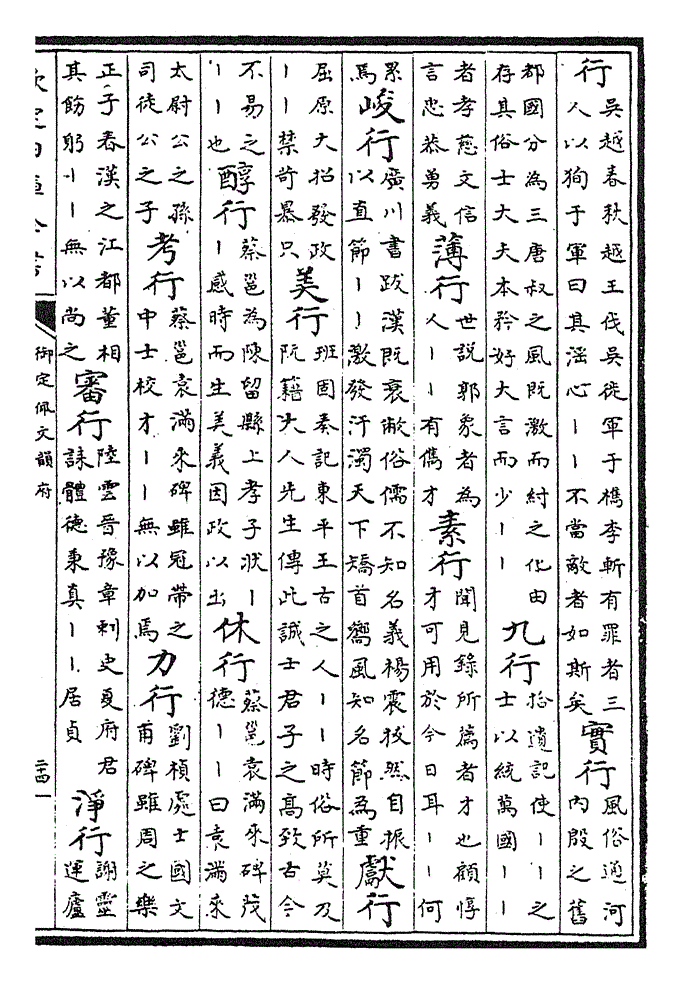 行吳越春秋越王伐吳徙軍于檇李斬有罪者三人以狥于軍曰其淫心丨丨不當敵者如斯矣 實行風俗通河内殷之舊
都國分為三唐叔之風既激而紂之化由存其俗士大夫本矜好大言而少丨丨 九行拾遺記使丨丨之士以統萬國丨丨
者孝慈文信言忠恭勇義 薄行世説郭象者為人丨丨有儁才 素行聞見録所薦者才也顧惇才可用於今日耳丨丨何
累焉 峻行廣川書跋漢既衰敝俗儒不知名義楊震拔然自振以直節丨丨激發汙濁天下矯首嚮風知名節為重 獻行
屈原大招發政丨丨禁苛暴只 美行班固奏記東平王古之人丨丨時俗所莫及阮籍大人先生傳此誠士君子之高致古今
不易之丨丨也 醇行蔡邕為陳留縣上孝子狀丨丨感時而生美義因政以出 休行蔡邕袁滿來碑茂德丨丨曰袁滿來
太尉公之孫司徒公之子 考行蔡邕袁滿來碑雖冠帶之中士校才丨丨無以加焉 力行劉楨處士國文甫碑雖周之樂
正子春漢之江都董相其飭躬丨丨無以尚之 審行陸雲晉豫章刺史夏府君誄體德秉真丨丨居貞 淨行謝靈運廬
欽定四庫全書
御定佩文韻府